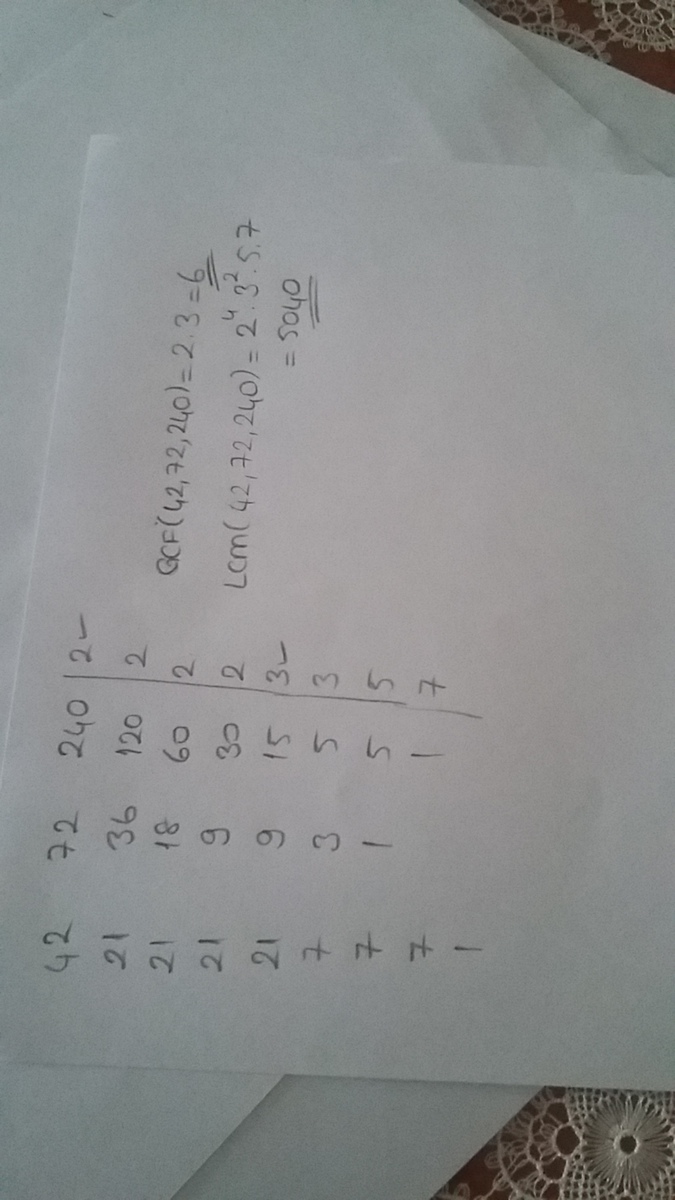 42 72 240 | 2 ✓
21 36 120 | 2
21 18 60 | 2
21 9 30 | 2
21 9 15 | 3 ✓
7 3 5 | 3
7 1 5 | 5
7 1 | 7
1
GCF(42,72,240) = 2.3 = 6
LCM(42,72,240) = 2⁴.3².5.7
= 5040